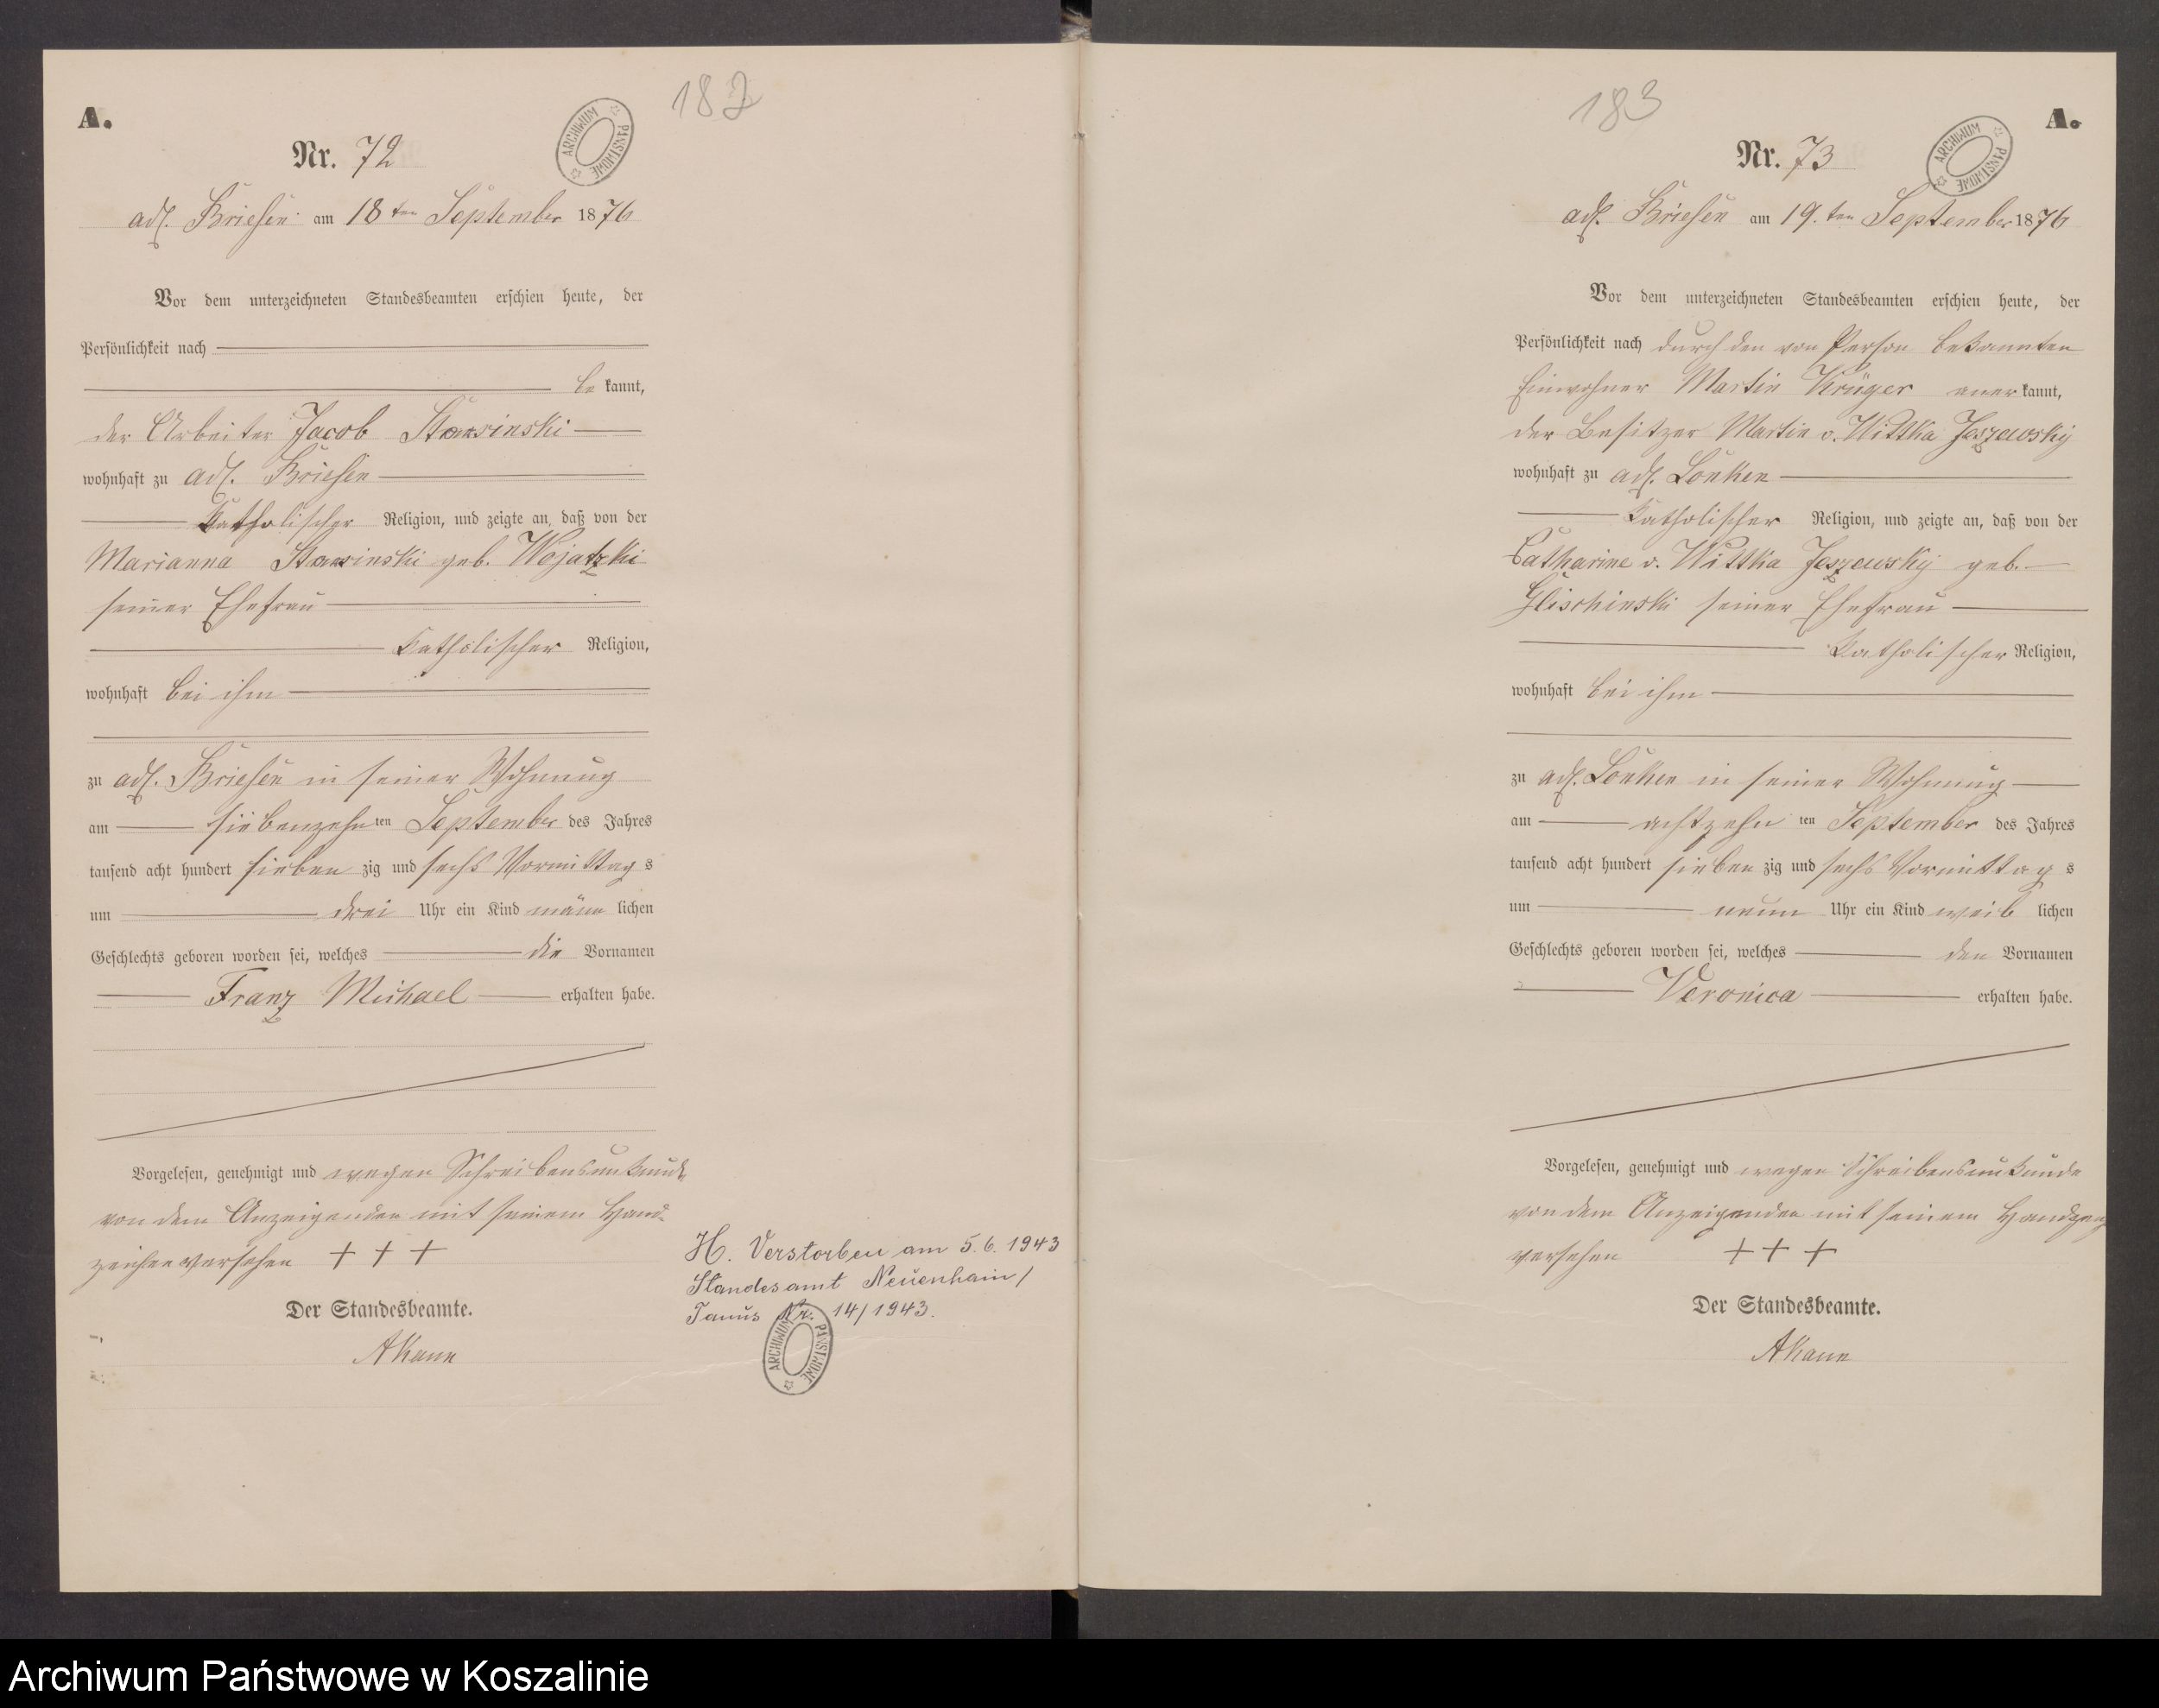 182
A.
Nr. 72
ARCHIWUM PAŃSTWOWE
adl. Briesen am 18ten September 1876
Vor dem unterzeichneten Standesbeamten erschien heute, der
Persönlichkeit nach
be kannt,
der Arbeiter Jacob
wohnhaft zu adl. Briesen
katholischer Religion, und zeigte an, daß von der
Marianna geb. Wojatzki
seiner Ehefrau
katholischer Religion,
wohnhaft bei ihm
zu adl. Briesen in seiner Wohnung
am siebenzehn ten September des Jahres
tausend acht hundert sieben zig und sechs Vormittag s
um drei Uhr ein Kind männ lichen
Geschlechts geboren worden sei, welches die Vornamen
Franz Michael erhalten habe.
Vorgelesen, genehmigt und wegen Schreibensunkunde
von dem Anzeigenden mit seinem Hand-
zeichen versehen + + +
Der Standesbeamte.
AKann
H. Verstorben am 5.6.1943
Standesamt Neuenhain/
Taunus Nr. 14/1943.
ARCHIWUM PAŃSTWOWE
183
A.
Nr. 73
ARCHIWUM PAŃSTWOWE
adl. Briesen am 19.ten September 1876
Vor dem unterzeichneten Standesbeamten erschien heute, der
Persönlichkeit nach durch den von Person bekannten
Einwohner Martin Krüger aner kannt,
der Besitzer Martin v. Wittka Jeszewsky
wohnhaft zu adl. Lonken
katholischer Religion, und zeigte an, daß von der
Catharine v. Wittka Jeszewsky geb.
Glischinski seiner Ehefrau
katholischer Religion,
wohnhaft bei ihm
zu adl. Lonken in seiner Wohnung
am achtzehn ten September des Jahres
tausend acht hundert sieben zig und sechs Vormittag s
um neun Uhr ein Kind weib lichen
Geschlechts geboren worden sei, welches den Vornamen
Veronica erhalten habe.
Vorgelesen, genehmigt und wegen Schreibensunkunde
von dem Anzeigenden mit seinem Handzeichen
versehen + + +
Der Standesbeamte.
AKann
Archiwum Państwowe w Koszalinie